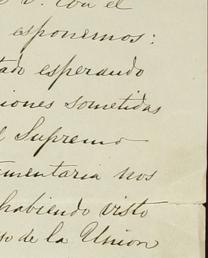 con el
esponemos:
tado esperando
iones sometidas
l Supremo
mentaria nos
habiendo visto
so de la Union